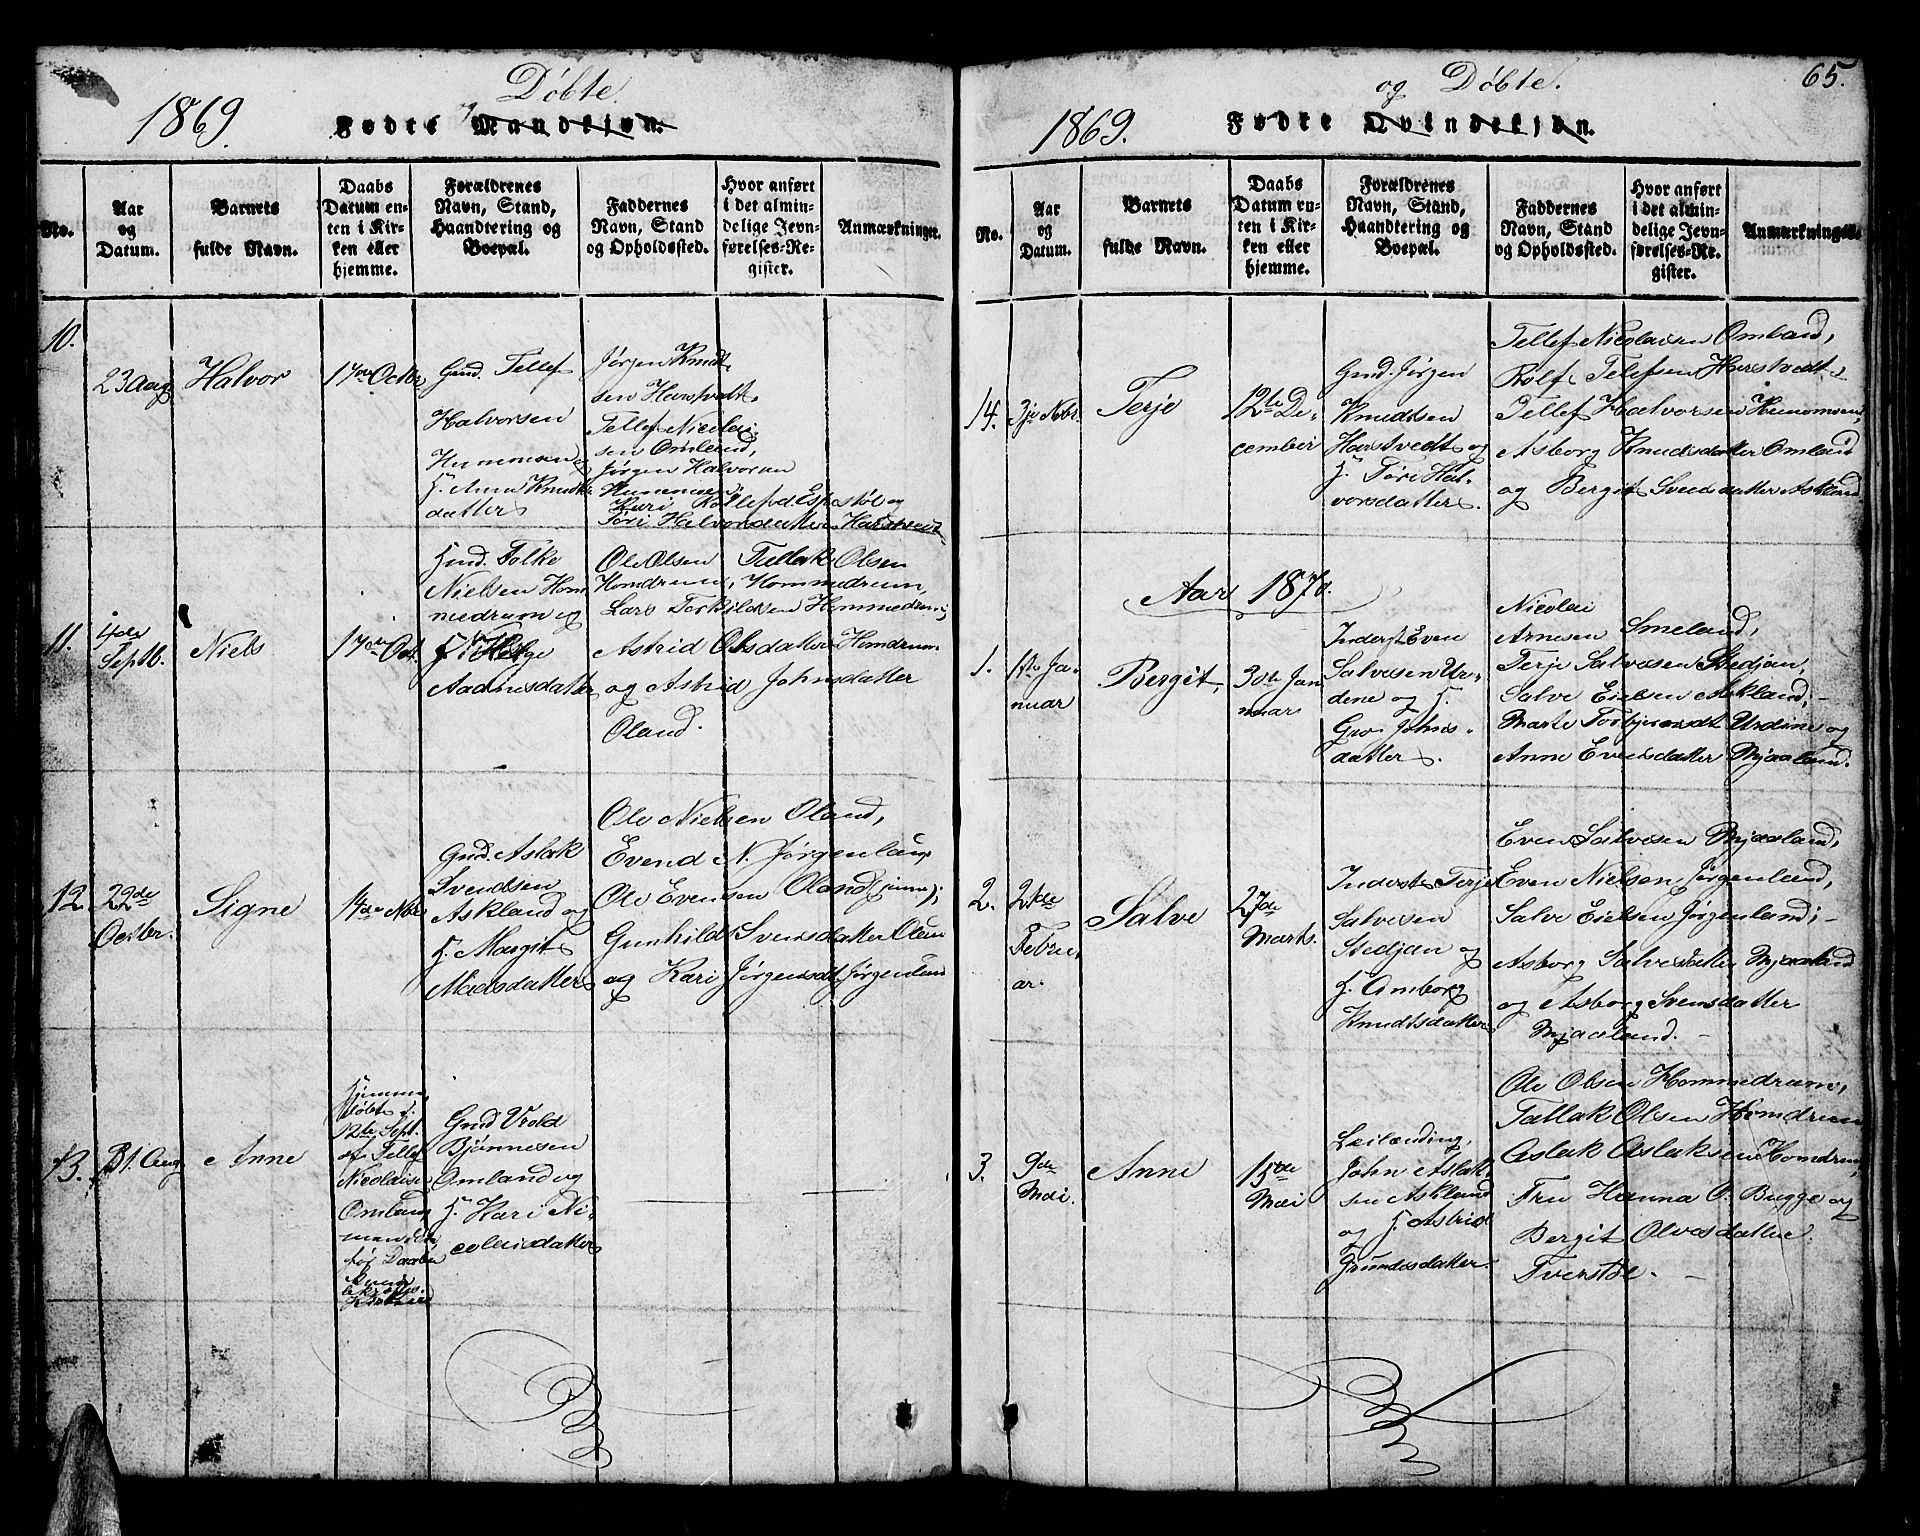 Døbte.
1869. Fødte og Mandkjøn.
No.
Aar
og
Datum.
Barnets
fulde Navn.
Daabs
Datum en-
ten i Kir-
ken eller
hjemme.
Forældrenes
Navn, Stand,
Haandtering og
Boepæl.
Faddernes
Navn, Stand
og Opholdssted.
Hvor anført
i det almin-
delige Jevn-
førelses-Re-
gister.
Anmærkninger.
10.
23 Aug
Halvor
17de Octbr
Gmd. Tellef
Halvorsen
Hummen
og
H. Anne Knuds-
datter
Jørgen Knudt-
sen Harstvedt,
Tellef Nicolai-
sen Omland,
Jørgen Halvorsen
Kari Rollefsd. Espestøl og
Tori Halvorsdatter Harstvedt
11.
4de
Septb.
Niels
17de Oct.
Gmd. Folke
Nielsen Hom-
medrum og
H. Helge
Aadnesdatter
Ole Olsen Tallak Olsen
Homdrum, Hommedrum,
Lars Terkildsen Hommedrum;
Astrid Olsdatter Homdrum
og Astrid Johnsdatter
Oland.
12
22de
Octbr.
Signe
14de Nbr
Gmd. Aslak
Svendsen
Askland og
H. Margit
Madsdatter
Ole Nielsen Oland,
Evend N. Jørgenlan
Ole Evensen Oland;
Gunhild Svensdatter Olan
og Kari Jørgensdt. Jørgenlan
13.
31. Aug
Anne
Hjemme
døbt d.
12te Sept.
af Tellef
Nicolaisen
Omland
men dde
før Daaben
bekræftes.
Gmd. Vrold
Bjørnnesen
Omland og
H. Kari Ni-
colaisdatter
65.
og Døbte.
1869. Fødte Qvindekjøn.
No.
Aar
og
Datum.
Barnets
fulde Navn.
Daabs
Datum en-
ten i Kir-
ken eller
hjemme.
Forældrenes
Navn, Stand,
Haandtering og
Boepæl.
Faddernes
Navn, Stand
og Opholdssted.
Hvor anført
i det almin-
delige Jevn-
førelses-Re-
gister.
Anmærkninger.
14.
3je Nbr.
Terje
12te De-
cember
Gmd. Jørgen
Knudsen
Harstvedt og
H. Tøri Hal-
vorsdatter.
Tellef Nicolaisen Omland,
Rolf Telefsen Harstvedt,
Tellef Halvorsen Hummen,
Asborg Knudsdatter Omland
og Bergit Svensdatter Askland
Aar 1870.
1.
1ste Ja-
nuar
Bergit,
30te Jan
nuar
Inderst Even
Salvesen Ur-
dene og H.
Gro Johns-
datter.
Nicolai
Arnesen Smeland,
Terje Salvesen Stedjan,
Salve Eielsen Askland;-
Marte Torbjørnsdt Urdene og
Anne Evensdatter Mjaaland.
2.
21de
Febru-
ar.
Salve
27de
Marts.
Inderst Terje
Salvesen
Stedjan og
H. Amborg
Knudtsdatter
Even Salvesen Mjaaland,
Even Nielsen Jørgenland,
Salve Eielsen Jørgenland;-
Asborg Salvesdatter Mjaaland
og Asborg Svensdatter
Mjaaland. -
3.
9de
Mai.
Anne
15de
Mai
Leilænding
John Aslak-
sen Askland
og H. Astrid
Gundersdatter
Ole Olsen Hommedrum,
Tallak Olsen Homdrum
Aslak Aslaksen Homdrum,
Fru Hanna O. Bugge og
Bergit Olvesdatter
Tverstøl. -